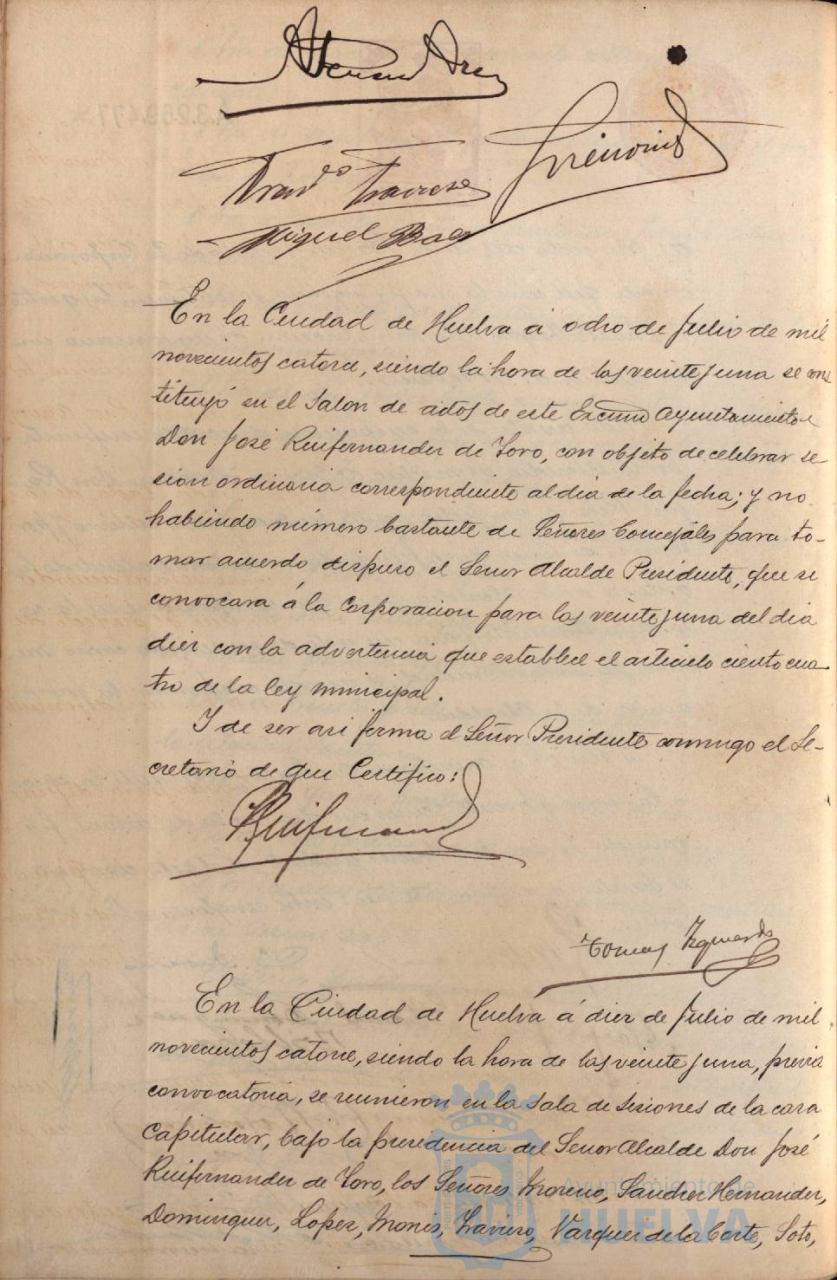 Miguel Baez
En la Ciudad de Huelva á ocho de Julio de mil
novecientos catorce, siendo la hora de las veinte y una se cons
tituyó en el Salon de actos de este Excmo Ayuntamiento
Don José Ruifernandez de Toro, con objeto de celebrar se
sion ordinaria correspondiente al dia de la fecha; y no
habiendo número bastante de Señores Concejáles para to-
mar acuerdo dispuso el Señor Alcalde Presidente, que se
convocara á la Corporacion para las veinte y una del dia
diez con la advertencia que establece el articulo ciento cua-
tro de la ley municipal.
Y de ser asi firma el Señor Presidente conmigo el Se-
cretario de que Certifico:
Ruifernandez
Tomas Izquierdo
En la Ciudad de Huelva á diez de Julio de mil
novecientos catorce, siendo la hora de las veinte y una, previa
convocatoria, se reunieron en la Sala de Sesiones de la casa
Capitular, bajo la presidencia del Señor Alcalde Don José
Ruifernandez de Toro, los Señores Moreno, Sanchez Hernandez,
Dominguez, Lopez, Mones, Traviesa, Vazquez de la Corte, Soto,
Ayuntamiento de
HUELVA